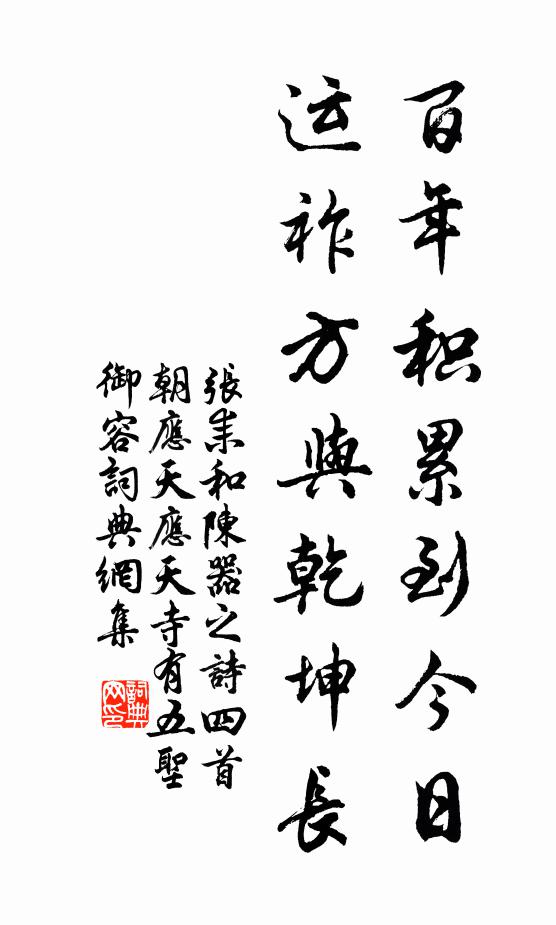 百年积累到今日
运祚方與乾坤長
張耒和陳器之詩四首
朝應天應天寺有五聖
御容詞典網集
詞典网印